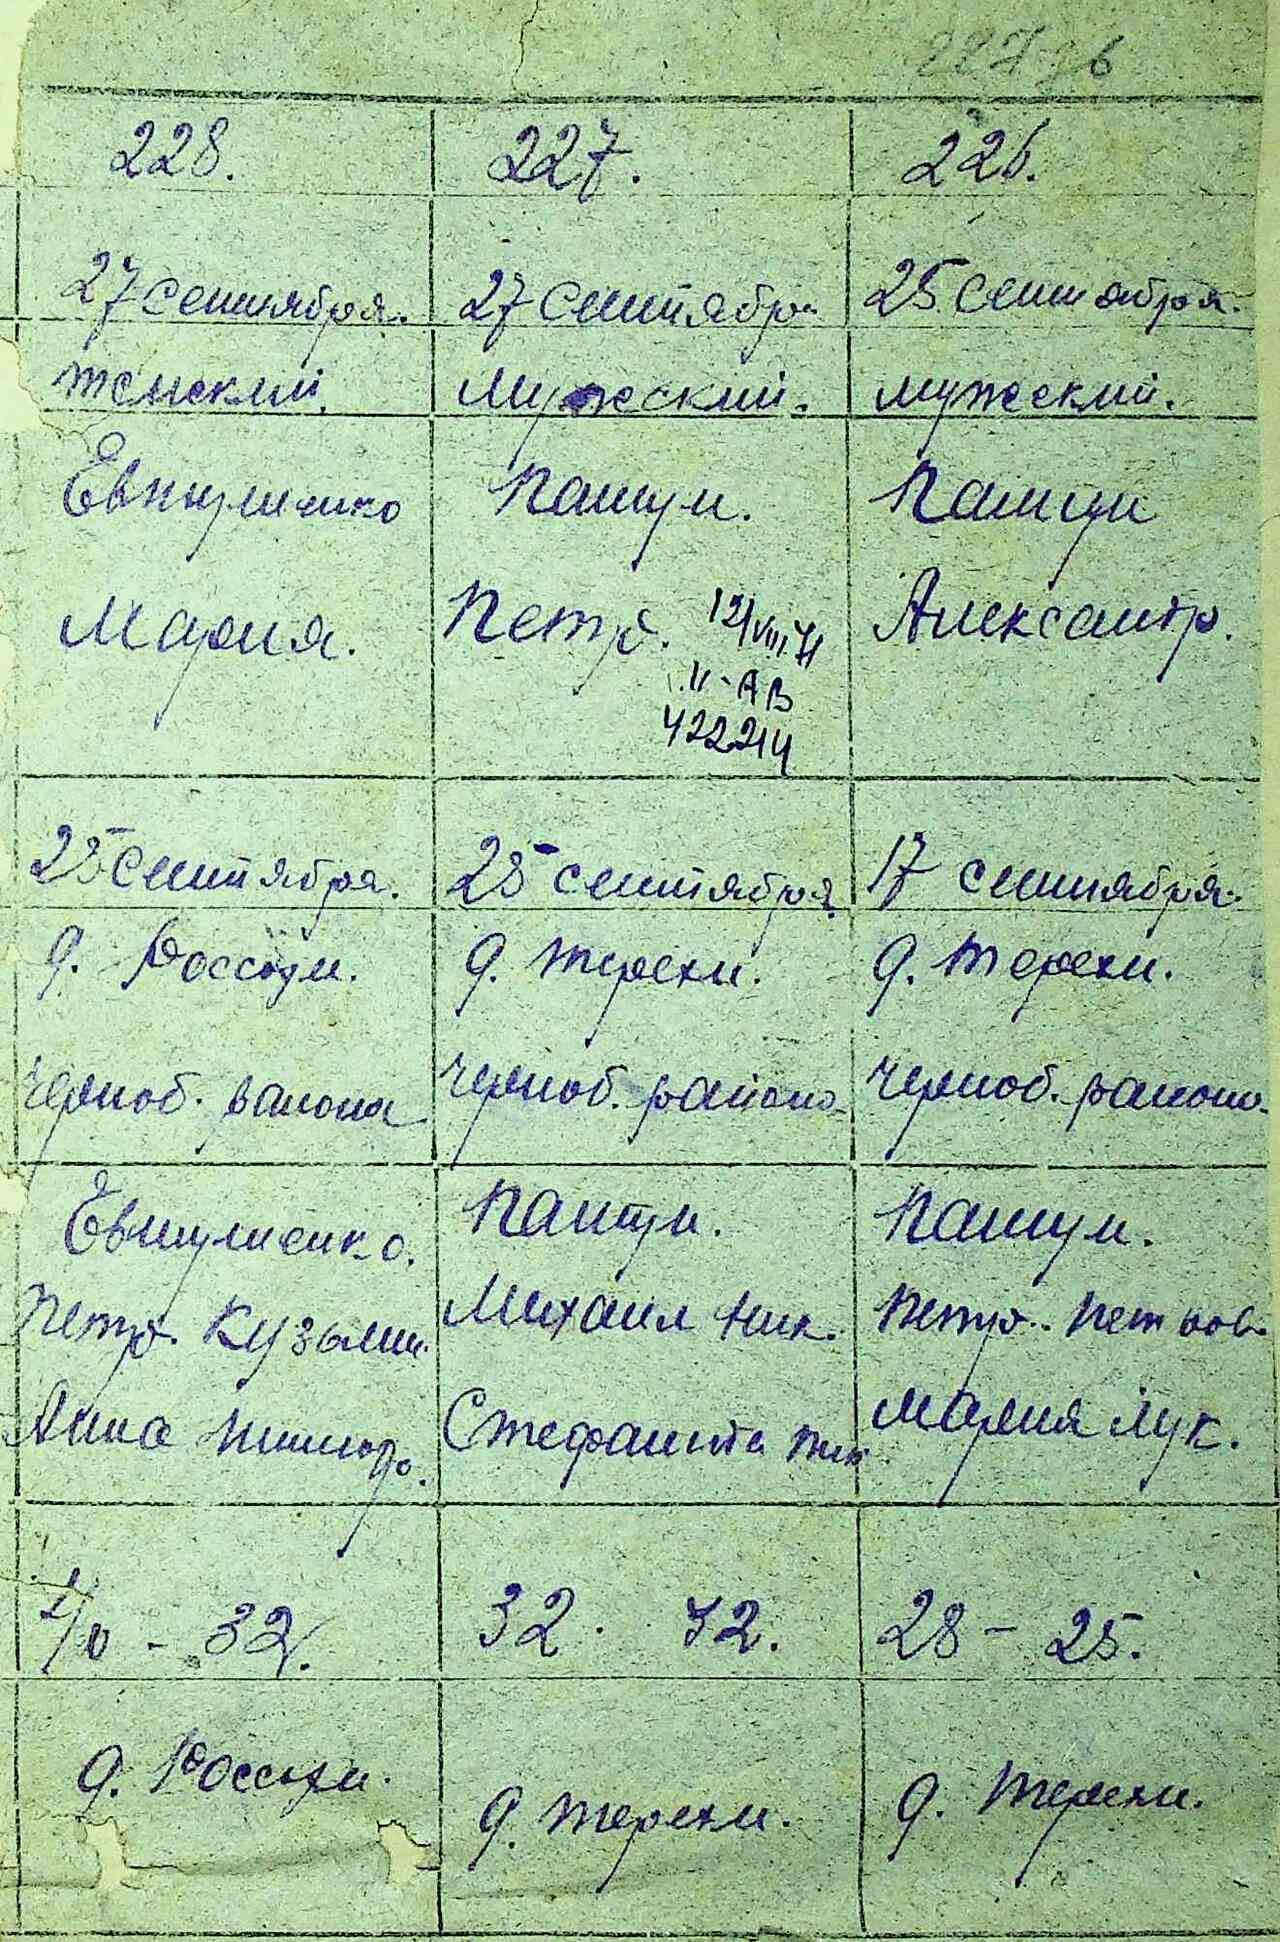 228. 227. 226.
27 сентября. 27 сентября 25 сентября.
женский. Мужеский. мужеский.
Пашун. Пашун
Мария. Петр. 12/VIII.71 Александр.
II-АВ
422214
25 сентября. 25 сентября 17 сентября.
д. Россохи. д. терехи. д. терехи.
черноб. района черноб. района черноб. района
Пашун. Пашун.
Петр. Кузьми. Михаил Ник. Петр. Петров.
Анна Стефанида Мария Лук.
- 32. 32. 32. 28 - 25.
д. Россохи. д. терехи. д. терехи.